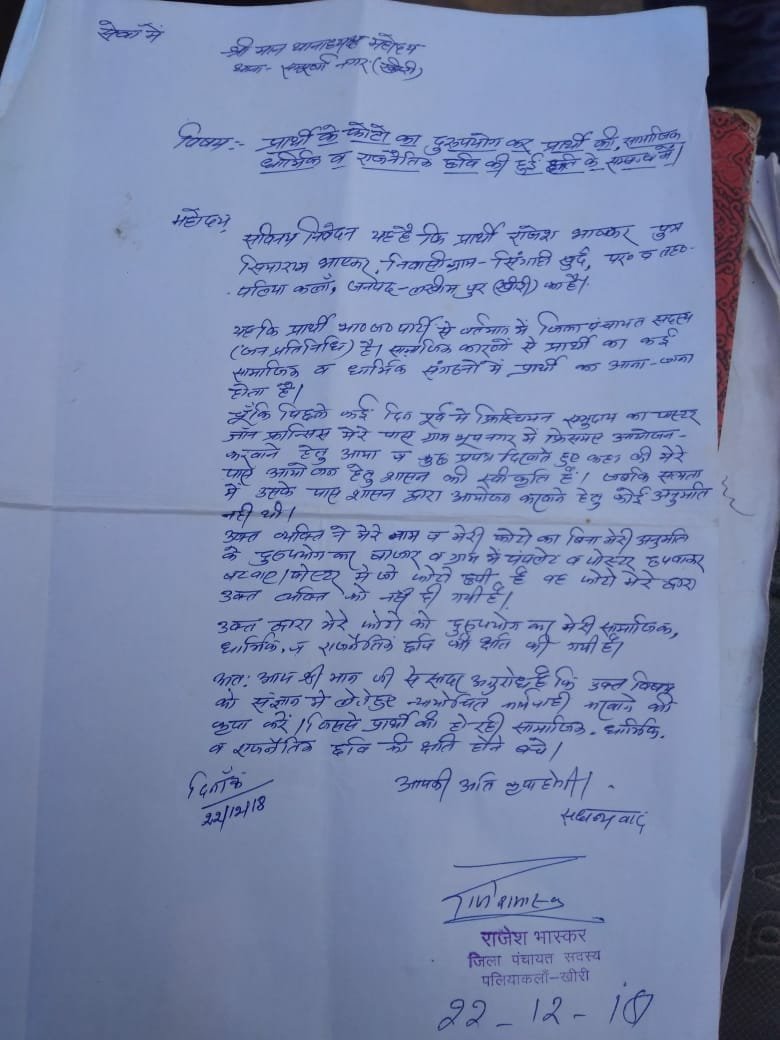 सेवा में
श्री मान थानाध्यक्ष महोदय
थाना- सम्पूर्णा नगर (खीरी)
विषय:- प्रार्थी के फोटो का दुरुपयोग कर प्रार्थी की, सामाजिक
धार्मिक व राजनैतिक छवि की हुई क्षति के सम्बन्ध में।
महोदय,
सविनय निवेदन यह है कि प्रार्थी राजेश भाष्कर पुत्र
सियाराम भाष्कर, निवासी ग्राम- सिंगाही खुर्द, पर० व तह०-
पलिया कलाँ, जनपद- लखीमपुर (खीरी) का है।
यह कि प्रार्थी भा० ज० पार्टी से वर्तमान में जिला पंचायत सदस्य
(जन प्रतिनिधि) है। सामाजिक कारणों से प्रार्थी का कई
सामाजिक व धार्मिक संगठनों में प्रार्थी का आना-जाना
होता है।
चूँकि पिछले कई दिन पूर्व में क्रिश्चियन समुदाय का पास्टर
जॉन फ्रान्सिस मेरे पास ग्राम भूपनगर में क्रिसमस आयोजन-
करवाने हेतु आया व कुछ प्रपत्र दिखाते हुए कहा की मेरे
पास आयोजन हेतु शासन की स्वीकृति है। जबकि सत्यता
में उसके पास शासन द्वारा आयोजन करवाने हेतु कोई अनुमति
नहीं थी।
उक्त व्यक्ति ने मेरे नाम व मेरी फोटो का बिना मेरी अनुमति
के दुरुपयोग कर बाजार व ग्राम में पंपलेट व पोस्टर छपवाकर
बटवाए। पोस्टर में जो फोटो छपी है वह फोटो मेरे द्वारा
उक्त व्यक्ति को नहीं दी गयी है।
उक्त द्वारा मेरे फोटो को दुरुपयोग कर मेरी सामाजिक,
धार्मिक, व राजनैतिक छवि की क्षति की गयी है।
अत: आप श्री मान जी से सादर अनुरोध है कि उक्त विषय
को संज्ञान में लेते हुए न्यायोचित कार्यवाही करवाने की
कृपा करें। जिससे प्रार्थी की हो रही सामाजिक, धार्मिक,
व राजनैतिक छवि की क्षति होने बचे।
दिनाँक आपकी अति कृपा होगी।
22/12/18 सधन्यवाद
राजेश भास्कर
जिला पंचायत सदस्य
पलियाकलाँ-खीरी
22-12-18